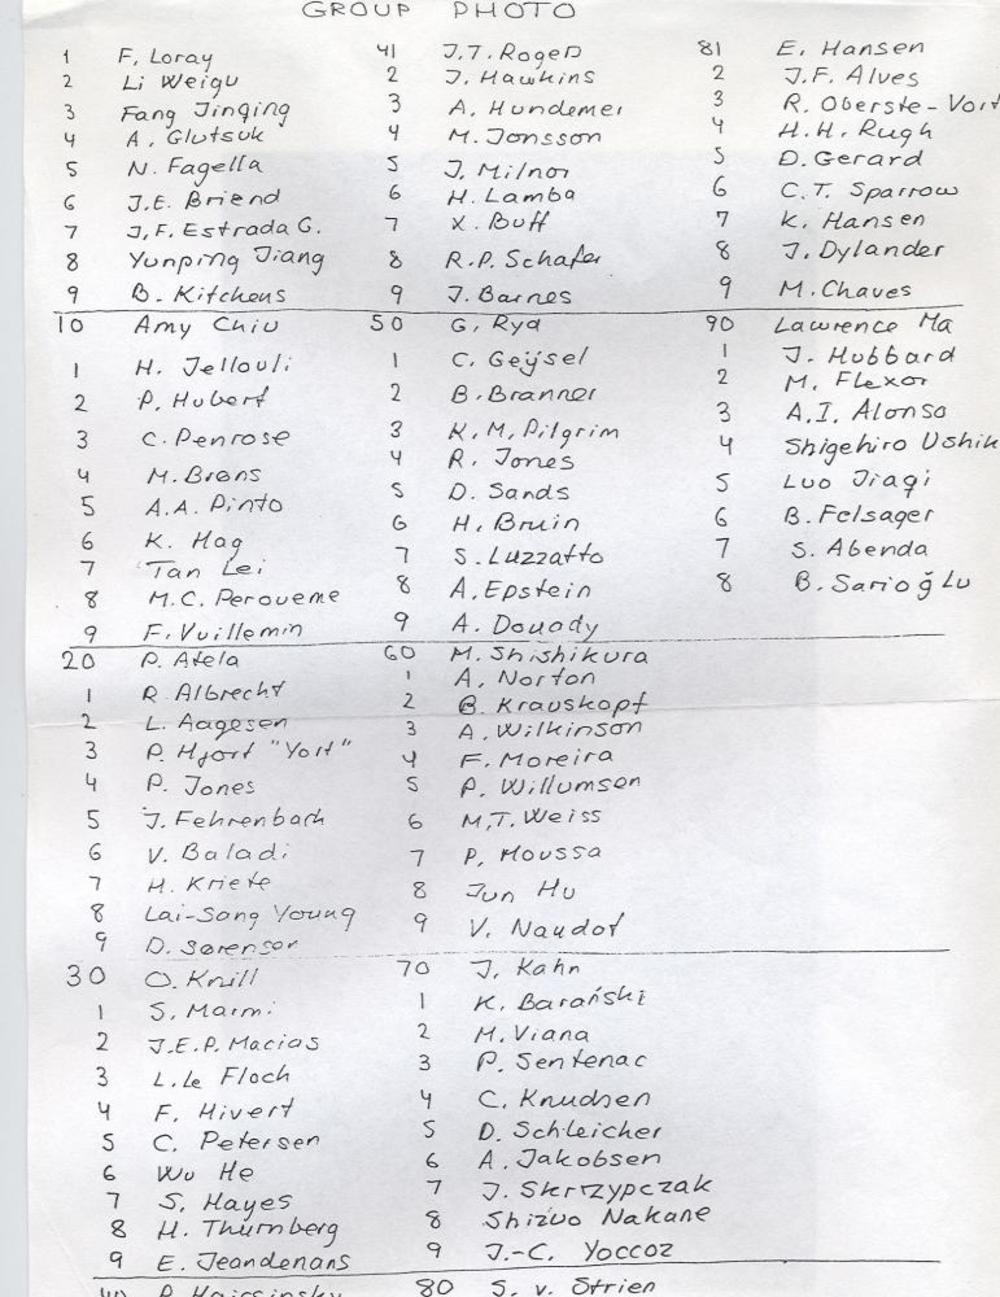 GROUP PHOTO
1 F. Loray
2 Li Weigu
3 Fang Jinqing
4 A. Glutsuk
5 N. Fagella
6 J.E. Briend
7 J.F. Estrada G.
8 Yunping Jiang
9 B. Kitchens
10 Amy Chiu
1 H. Jellouli
2 P. Hubert
3 C. Penrose
4 M. Brøns
5 A.A. Pinto
6 K. Hag
7 Tan Lei
8 M.C. Peroueme
9 F. Vuillemin
20 P. Atela
1 R Albrecht
2 L. Aagesen
3 P. Hjort "Yort"
4 P. Jones
5 J. Fehrenbach
6 V. Baladi
7 H. Kriete
8 Lai-Sang Young
9 D. Sørensor
30 O. Knill
1 S. Marmi
2 J.E.P. Macias
3 L. Le Floch
4 F. Hivert
5 C. Petersen
6 Wu He
7 S. Hayes
8 H. Thurnberg
9 E. Jeandenans
41 J.T. Rogers
2 J. Hawkins
3 A. Hundemer
4 M. Jonsson
5 J. Milnor
6 H. Lamba
7 X. Buff
8 R.P. Schafer
9 J. Barnes
50 G. Ryd
1 C. Geijsel
2 B. Branner
3 K.M. Pilgrim
4 R. Jones
5 D. Sands
6 H. Bruin
7 S. Luzzatto
8 A. Epstein
9 A. Douady
60 M. Shishikura
1 A. Norton
2 B. Krauskopf
3 A. Wilkinson
4 F. Moreira
5 P. Willumsen
6 M.T. Weiss
7 P. Moussa
8 Jun Hu
9 V. Naudot
70 J. Kahn
1 K. Barański
2 M. Viana
3 P. Sentenac
4 C. Knudsen
5 D. Schleicher
6 A. Jakobsen
7 J. Skrzypczak
8 Shizuo Nakane
9 J.-C. Yoccoz
80 S. v. Strien
81 E. Hansen
2 J.F. Alves
3 R. Oberste-Vort
4 H.H. Rugh
5 D. Gerard
6 C.T. Sparrow
7 K. Hansen
8 J. Dylander
9 M. Chaves
90 Lawrence Ma
1 J. Hubbard
2 M. Flexor
3 A.I. Alonso
4 Shigehiro Ushik
5 Luo Jiaqi
6 B. Felsager
7 S. Abenda
8 B. Sarioğlu